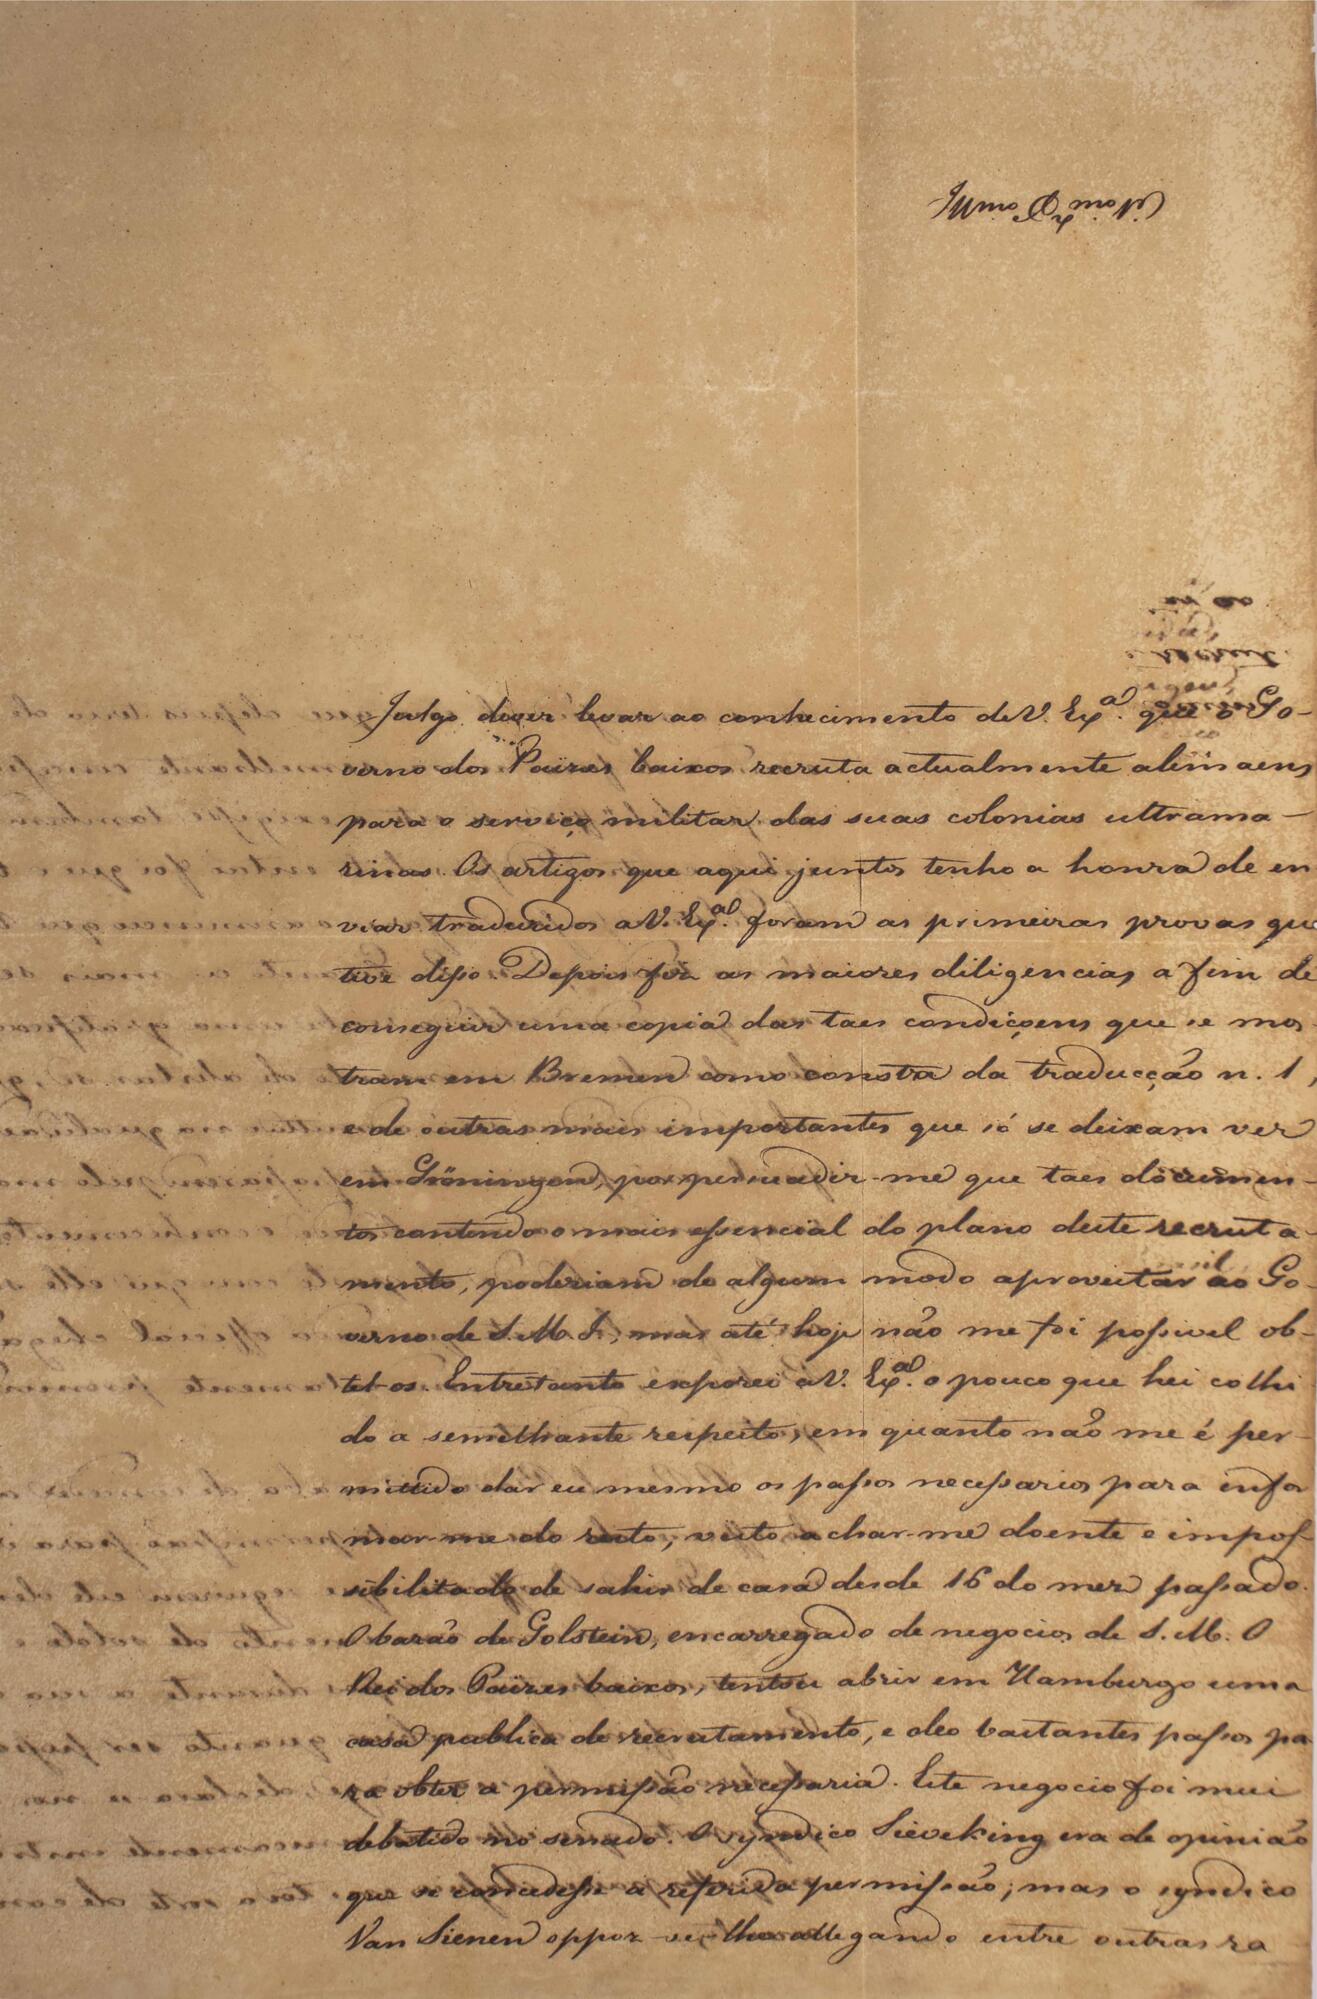 Julgo dever levar ao conhecimento de V. Exª. que o Go-
verno dos Païzes baixos recruta actualmente alemaens
para o serviço militar das suas colonias ultrama-
rinas. Os artigos que aqui juntos tenho a honra de en
viar traduzidos a V. Exª. foram as primeiras provas que
tive disso. Depois fiz as maiores diligencias a fim de
conseguir uma copia das taes condiçoens que se mos-
tram em Bremen como consta da traducção n. 1,
e de outras mais importantes que só se deixam ver
em Gröningen, por persuadir-me que taes documen-
tos contendo o mais essencial do plano deste recruta-
mento, poderiam de algum modo aproveitar ao Go-
verno de S. M. I., mas até hoje não me foi possivel ob-
tel-os. Entretanto exporei a V. Exª. o pouco que hei colhi
do a semelhante respeito, em quanto não me é per-
mittido dar eu mesmo os passos necessarios para infor
mar-me do resto, visto achar-me doente e impos-
sibilitado de sahir de casa desde 16 do mez passado.
O barão de Golstein, encarregado de negocios de S. M. O
Rei dos Païzes baixos, tentou abrir em Hamburgo uma
casa publica de recrutamento, e deo bastantes passos pa-
ra obter a permissão necessaria. Este negocio foi mui
debatido no senado. O syndico Sieveking era de opinião
que se concedesse a referida permissão; mas o syndico
Van Sienen oppoz-se-lhe allegando entre outras ra